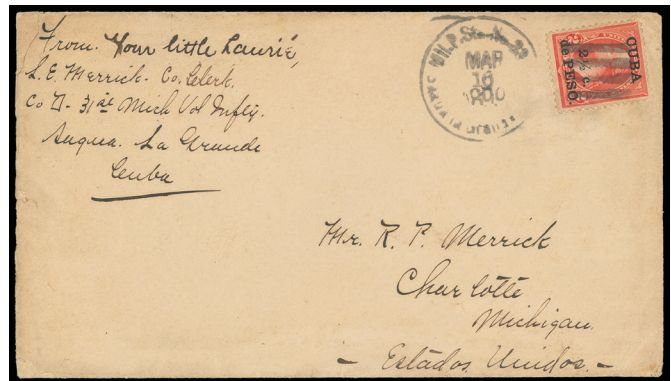 From. Your little Laurie,
L. E. Merrick - Co. Clerk.
Co D - 31st Mich Vol Infty.
Sagua. La Grande
Cuba
MIL. P. Sta. No.
MAR
10
CUBA
2½ c.
de PESO.
Mr. R. P. Merrick
Charlotte
Michigan.
- Estados Unidos. -